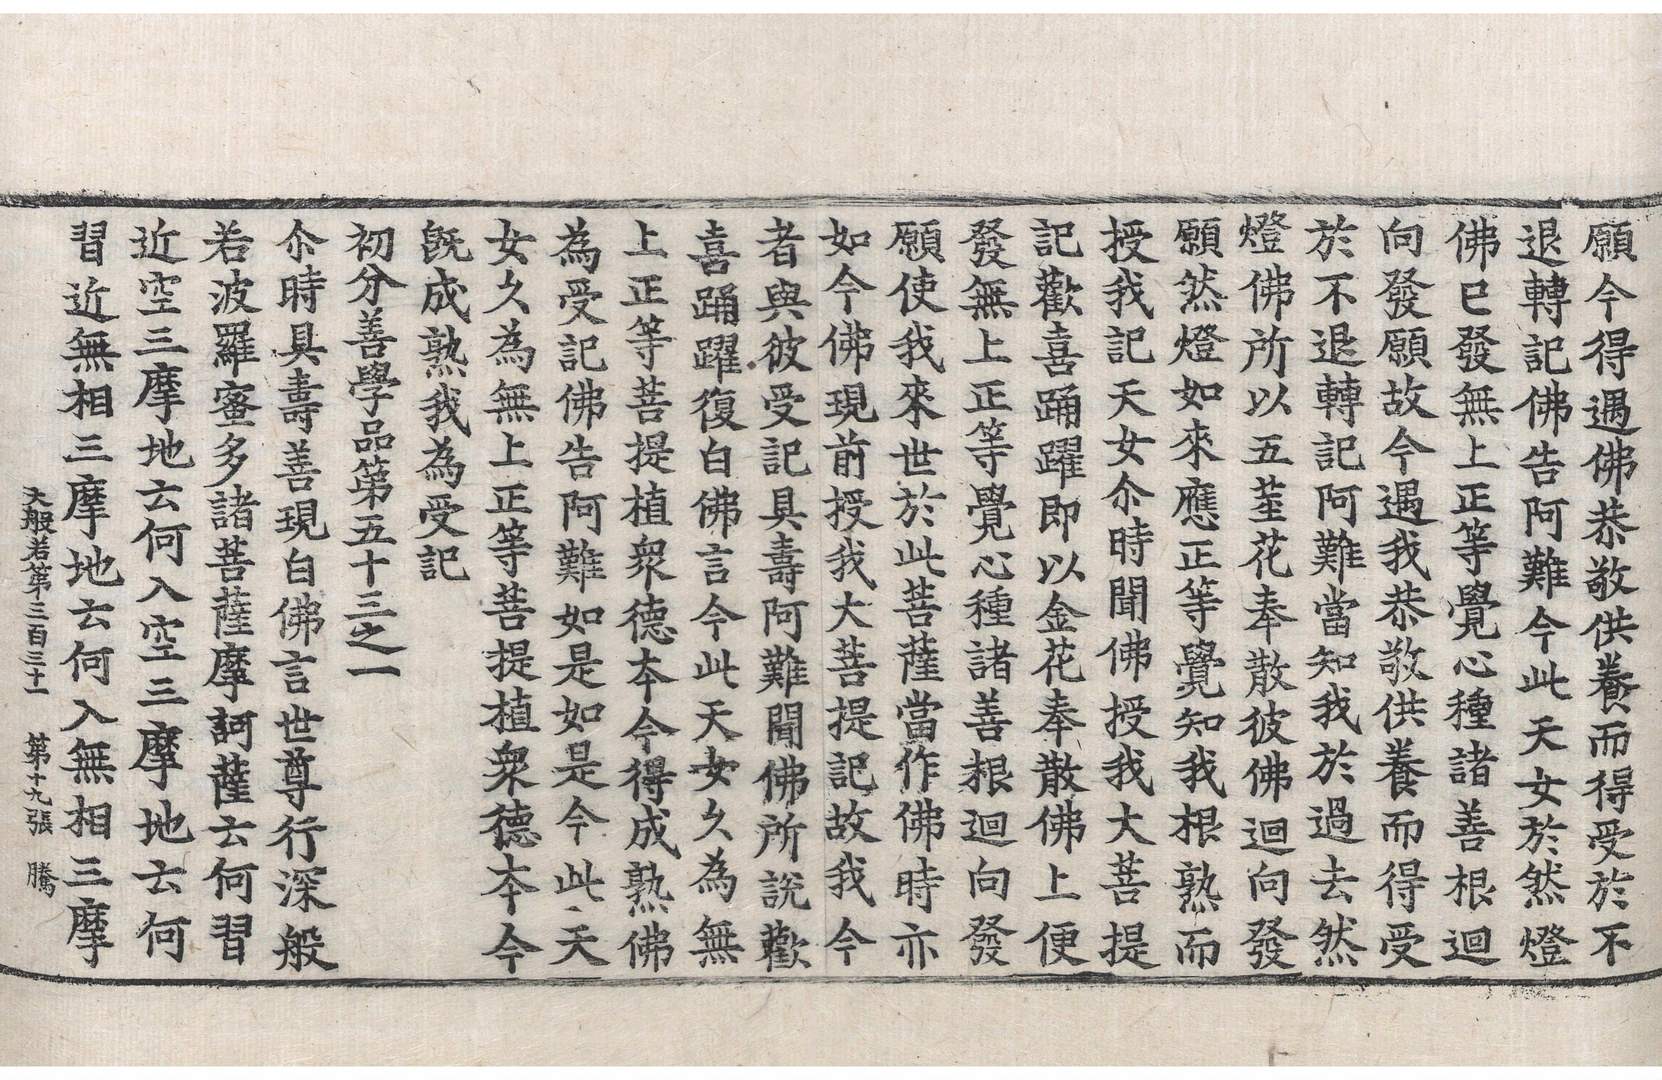 願今得遇佛恭敬供養而得受於不
退轉記佛告阿難今此天女於然燈
佛已發無上正等覺心種諸善根迴
向發願故今遇我恭敬供養而得受
於不退轉記阿難當知我於過去然
燈佛所以五莖花奉散彼佛迴向發
願然燈如來應正等覺知我根熟而
授我記天女尒時聞佛授我大菩提
記歡喜踊躍即以金花奉散佛上便
發無上正等覺心種諸善根迴向發
願使我來世於此菩薩當作佛時亦
如今佛現前授我大菩提記故我今
者與彼受記具壽阿難聞佛所說歡
喜踊躍復白佛言今此天女久為無
上正等菩提植衆德夲今得成熟佛
為受記佛告阿難如是如是今此天
女久為無上正等菩提植衆德夲今
旣成熟我為受記
初分善學品第五十三之一
尒時具壽善現白佛言世尊行深般
若波羅蜜多諸菩薩摩訶薩云何習
近空三摩地云何入空三摩地云何
習近無相三摩地云何入無相三摩
大般若第三百三十一 第十九張 騰